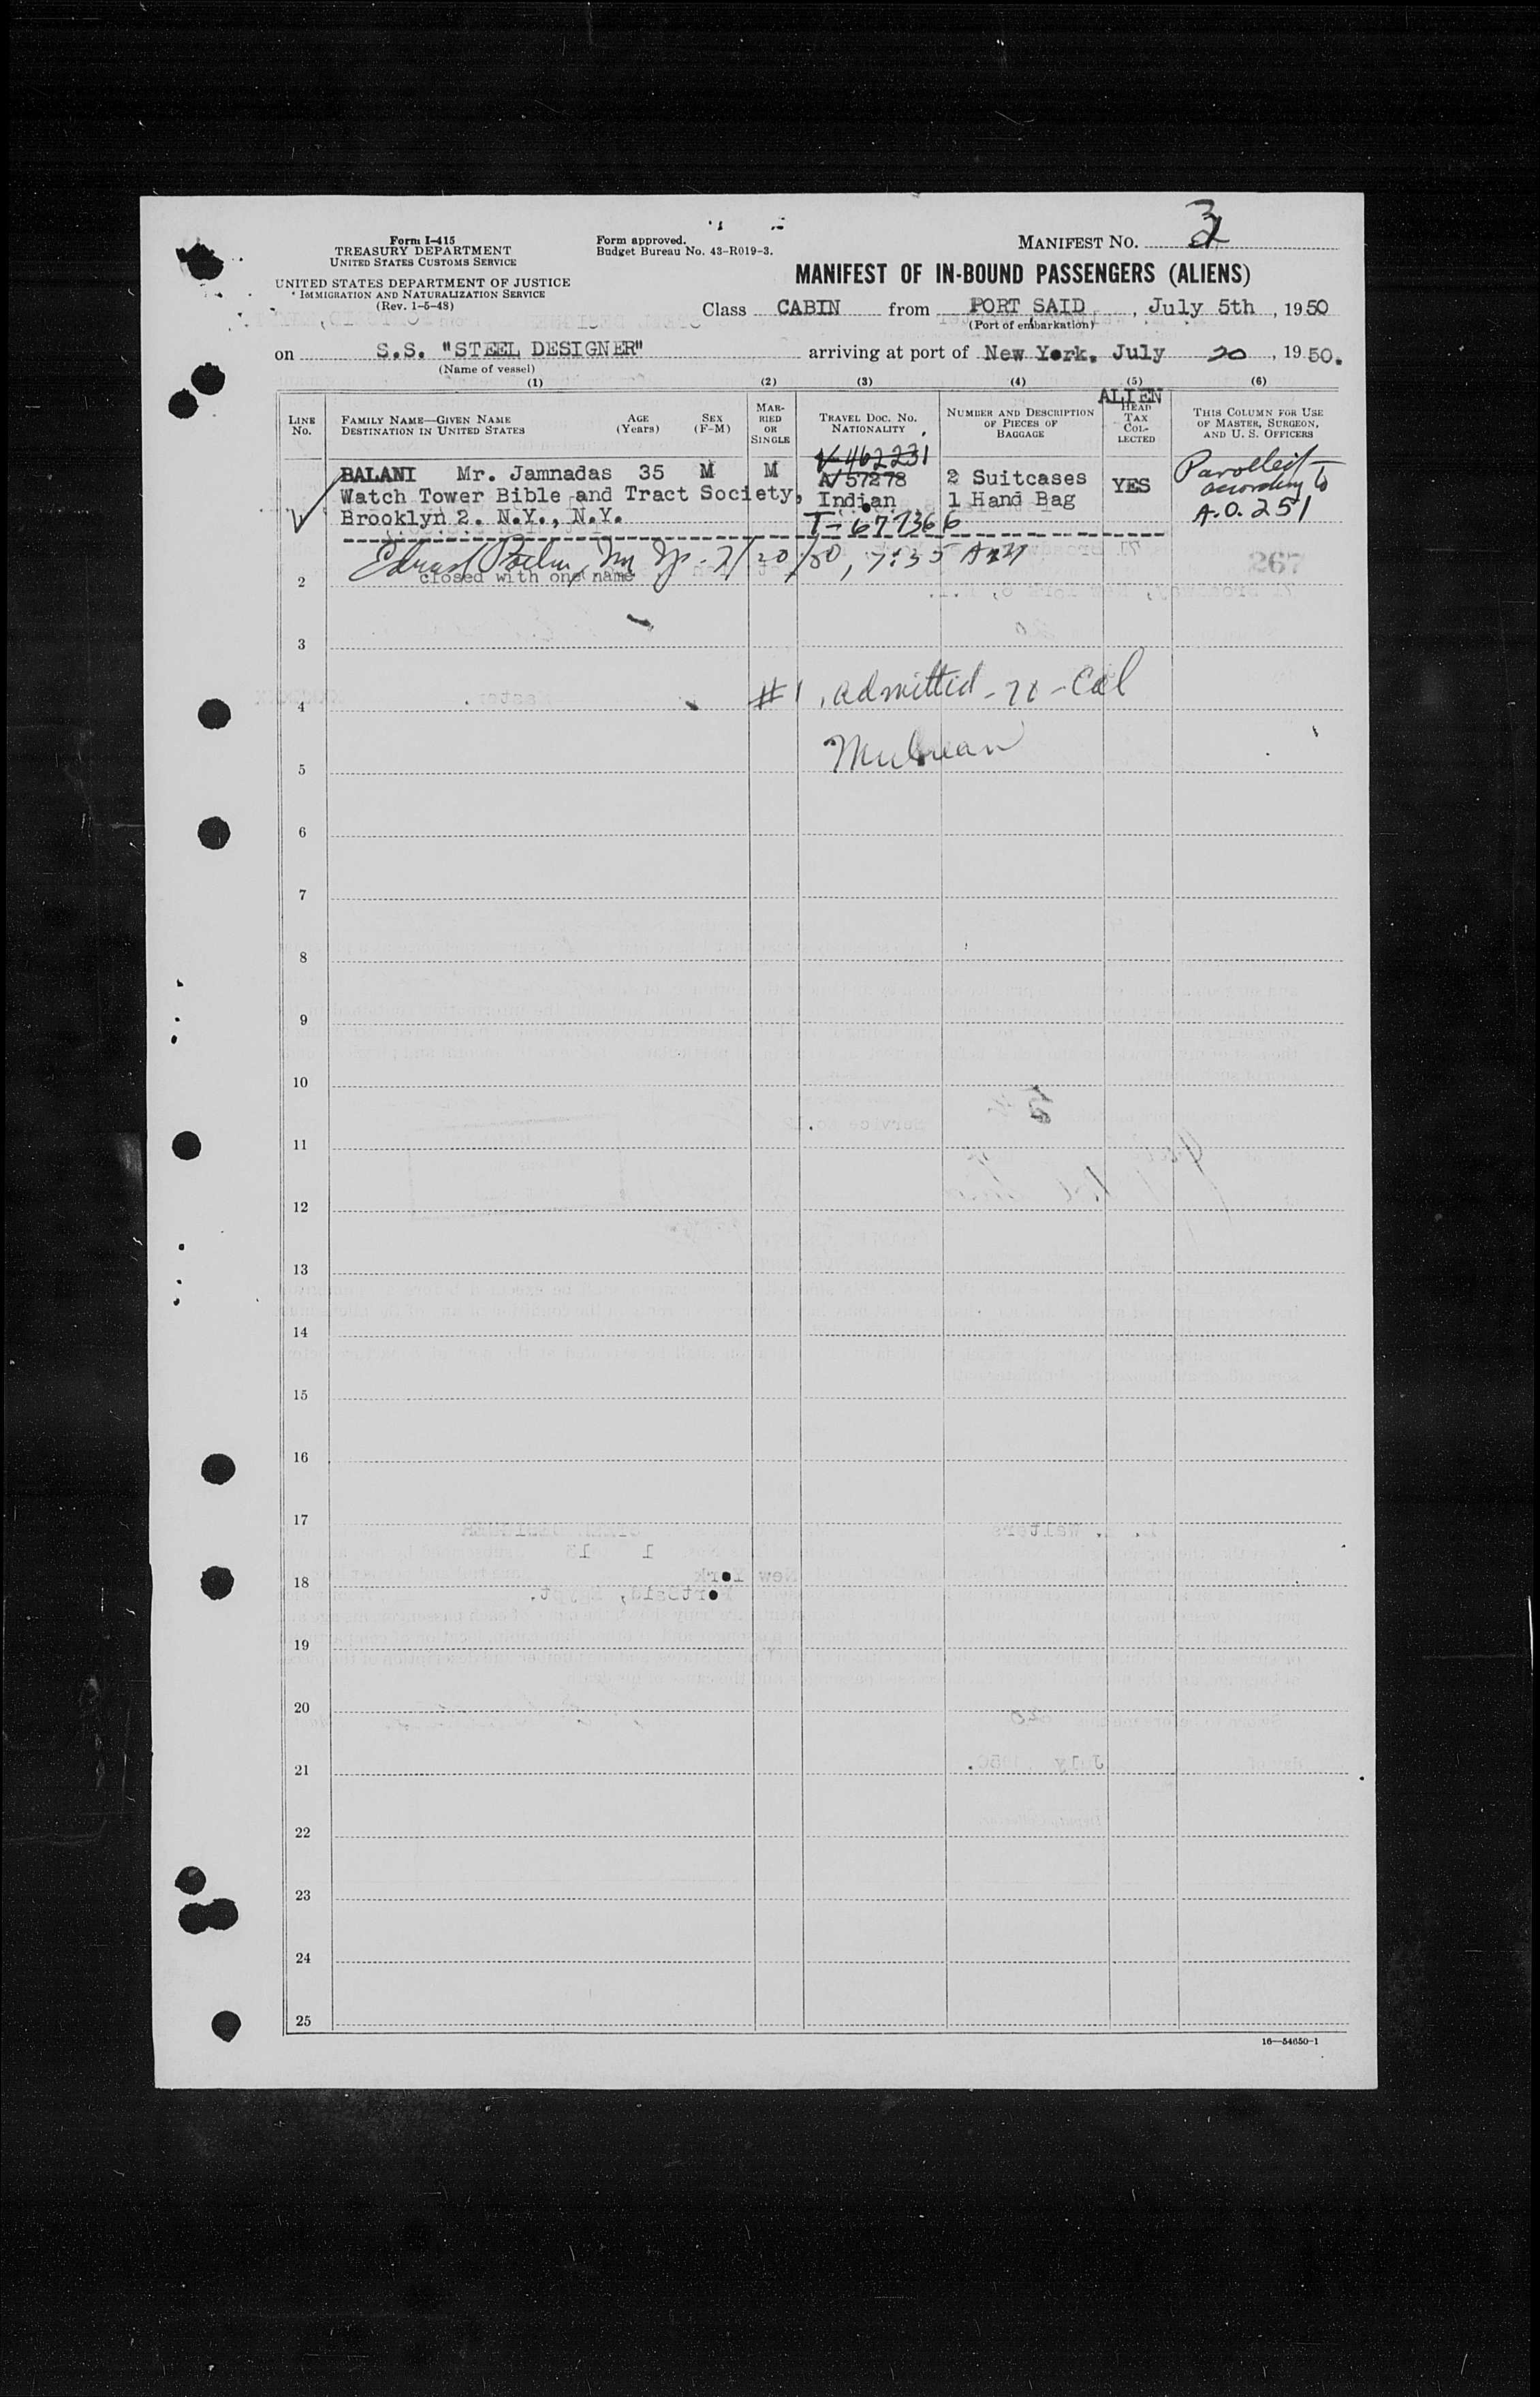 Form I-415
TREASURY DEPARTMENT
UNITED STATES CUSTOMS SERVICE
UNITED STATES DEPARTMENT OF JUSTICE
IMMIGRATION AND NATURALIZATION SERVICE
(Rev. 1-5-48)
Form approved.
Budget Bureau No. 43-R019-3.
MANIFEST NO.
MANIFEST OF IN-BOUND PASSENGERS (ALIENS)
Class CABIN from PORT SAID, July 5th, 1950
(Port of embarkation)
on S.S. "STEEL DESIGNER" arriving at port of New York, July 20, 1950.
(Name of vessel)
(1) (2) (3) (4) (5) (6)
ALIEN
LINE No.
FAMILY NAME—GIVEN NAME
DESTINATION IN UNITED STATES
AGE (Years)
SEX (F-M)
MARRIED OR SINGLE
TRAVEL DOC. NO.
NATIONALITY
NUMBER AND DESCRIPTION OF PIECES OF BAGGAGE
HEAD TAX COLLECTED
THIS COLUMN FOR USE OF MASTER, SURGEON, AND U. S. OFFICERS
V-462231
BALANI Mr. Jamnadas 35 M M A/57278 2 Suitcases YES Parolled
Watch Tower Bible and Tract Society, Indian 1 Hand Bag according to
Brooklyn 2. N.Y., N.Y. T-677366 A.O. 251
7/20/50, 7:35
closed with one name
2
3
#1, admitted
4
5
6
7
8
9
10
11
12
13
14
15
16
17
18
19
20
21
22
23
24
25
16—54650-1